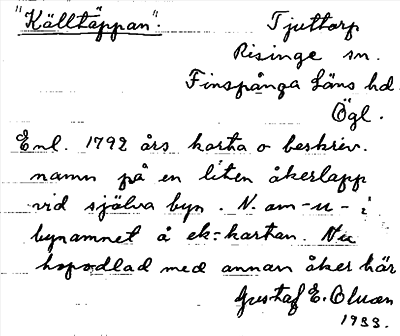 "Källtäppan".
Tjuttorp
Risinge sn.
Finspånga Läns hd.
Ögl.
Enl. 1792 års karta o beskriv.
namn på en liten åkerlapp
vid själva byn. N. om -u- i
bynamnet å ek=kartan. Nu
hopodlad med annan åker här
Gustaf E. Olsson
1933.